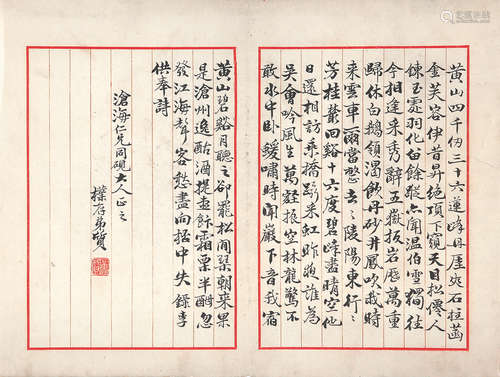 黃山四千仞三十六蓮峰丹崖夾石柱菡
金芙容伊昔昇絕頂下領天目松僊人
鍊玉處羽化留餘蹤亦聞溫伯雪獨往
今相逢采秀辭五嶽扳岩歷萬重
歸休白鵝領渴飲丹砂井鳳吹我時
来雲車爾當整去々陵陽東行々
芳桂叢回谿十六度碧嶂盡晴空他
日還相訪乘橋躡采虹昨夜誰為
吳會吟風生萬壑振空林龍驚不
敢水中卧猨嘯時聞巖下音我宿
黃山碧谿月聽之卻罷松間琹朝来果
是滄州逸酤酒提盘飰霜栗半酣忽
發江海聲客愁盡向桮中失錄李
供奉詩
滄海仁兄同硯大人正之
樸存弟質